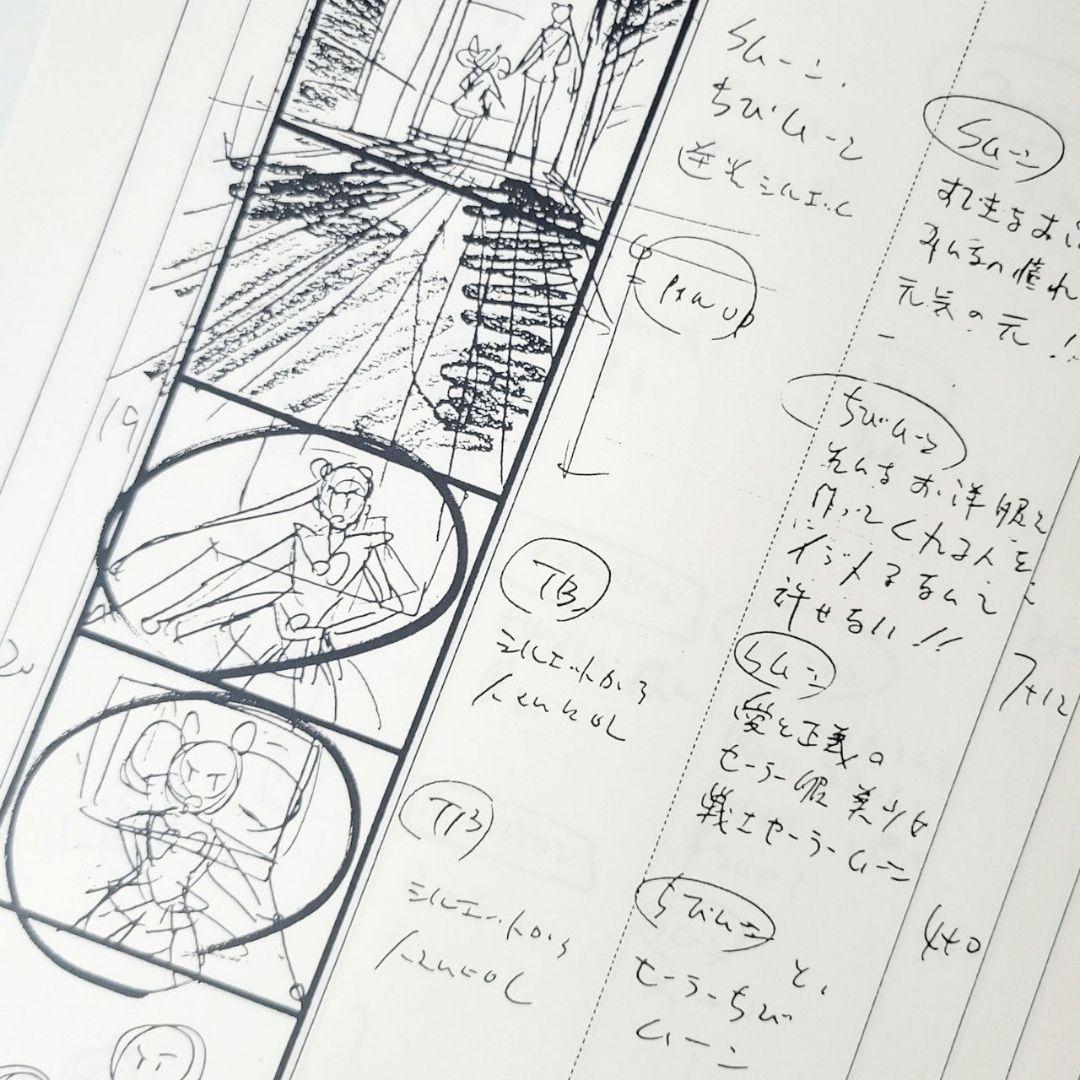 19
Sムーン、
ちびムーン
逆光シルエット
PAN UP
TB
シルエットから
TB
シルエットから
Sムーン
みんなの憧れ
元気の元!!
ちびムーン
そんなお洋服を
作ってくれる人を
イジメるなんて
許せない!!
Sムーン
愛と正義の
セーラー服美少女
戦士セーラームーン
ちびムーン
と、
セーラーちび
ムーン
7+12
4+0